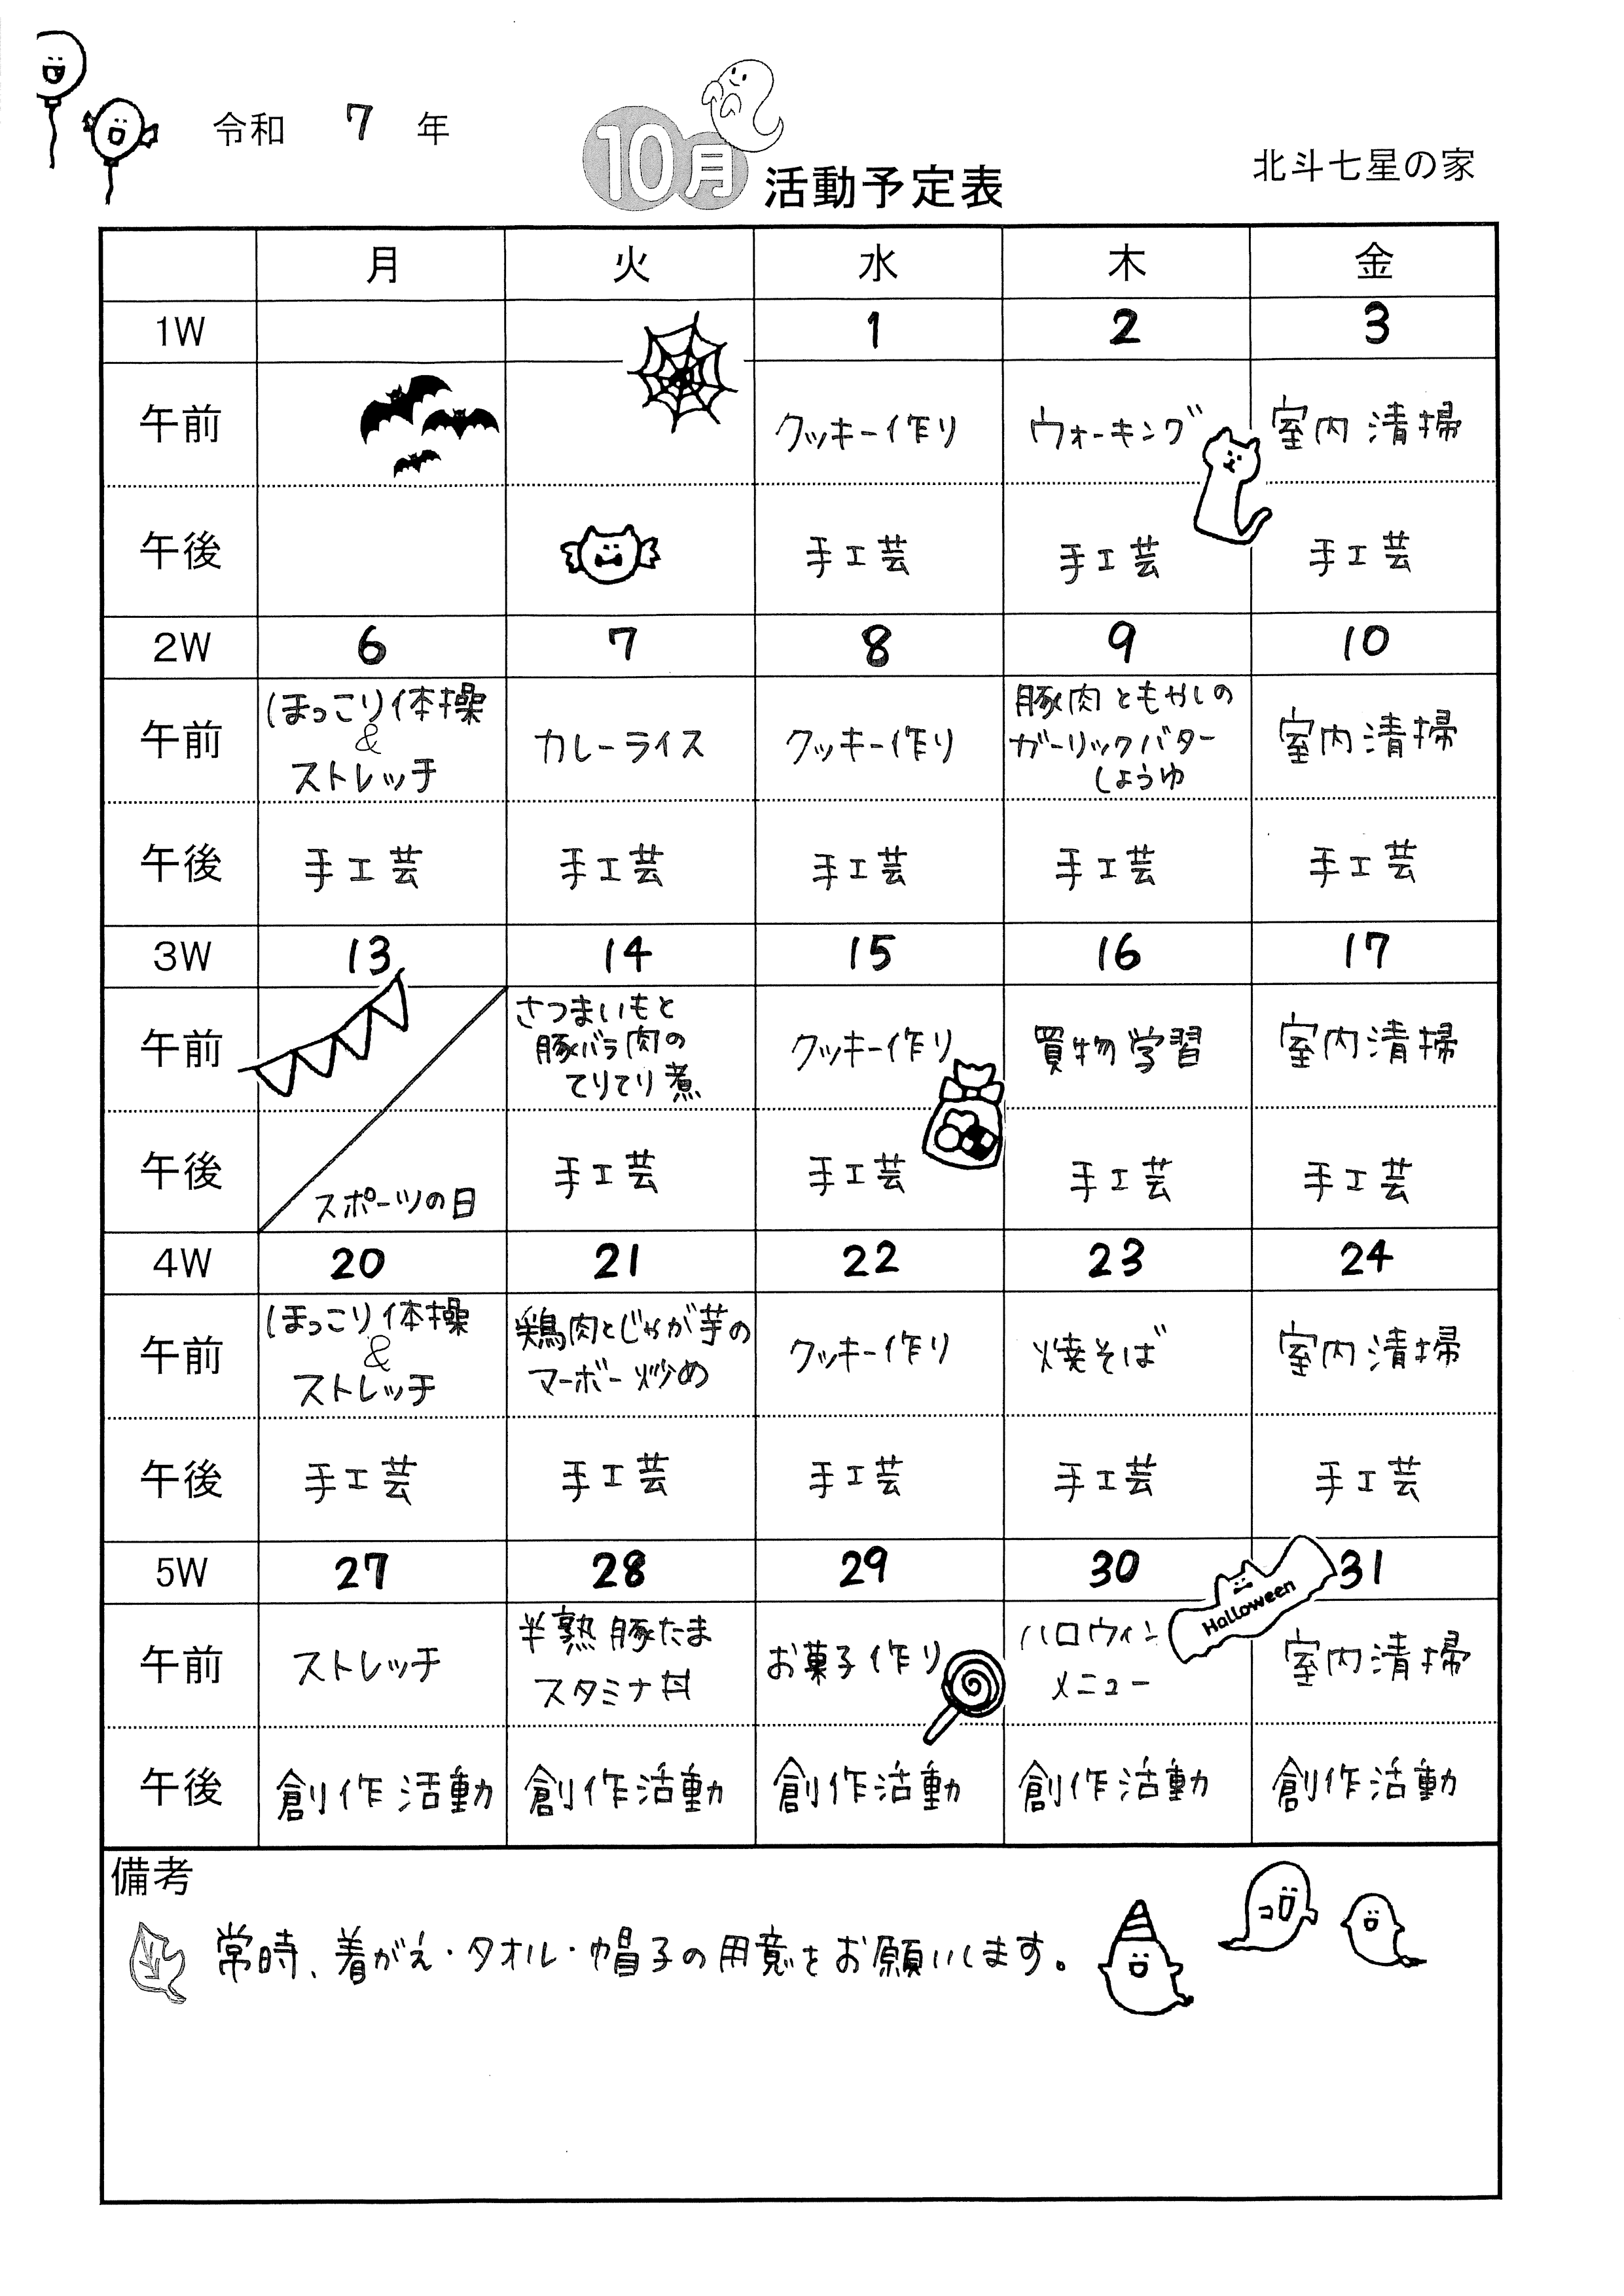 令和 7 年
10月 活動予定表
北斗七星の家
月 火 水 木 金
1W 1 2 3
午前 クッキー作り ウォーキング 室内清掃
午後 手工芸 手工芸 手工芸
2W 6 7 8 9 10
午前 ほっこり体操 & ストレッチ カレーライス クッキー作り 豚肉ともやしの ガーリックバター しょうゆ 室内清掃
午後 手工芸 手工芸 手工芸 手工芸 手工芸
3W 13 14 15 16 17
午前 さつまいもと 豚バラ肉の てりてり煮 クッキー作り 買物学習 室内清掃
午後 スポーツの日 手工芸 手工芸 手工芸 手工芸
4W 20 21 22 23 24
午前 ほっこり体操 & ストレッチ 鶏肉とじゃが芋の マーボー炒め クッキー作り 焼そば 室内清掃
午後 手工芸 手工芸 手工芸 手工芸 手工芸
5W 27 28 29 30 Halloween 31
午前 ストレッチ 半熟豚たま スタミナ丼 お菓子作り ハロウィン メニュー 室内清掃
午後 創作活動 創作活動 創作活動 創作活動 創作活動
備考
常時、着がえ・タオル・帽子の用意をお願いします。